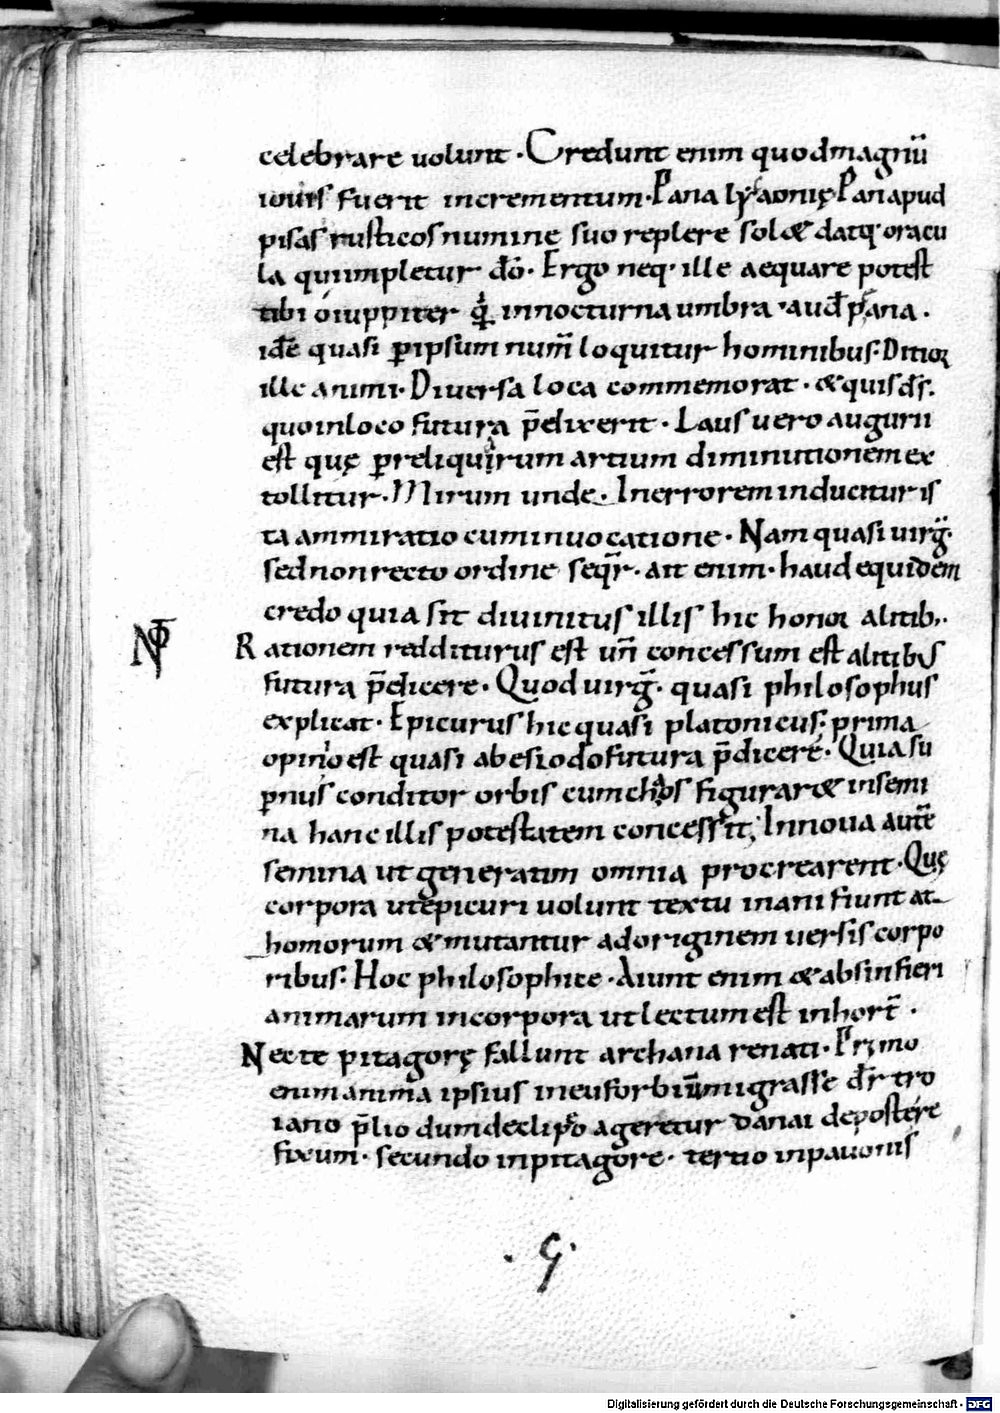 celebrare uolunt · Credunt enim quod magnū
iouis fuerit incrementum · Pana lycaonię · Pan apud
pisas rusticos numine suo replere solet datq; oracu
la qui impletur dō · Ergo neq; ille aequare potest
tibi o iuppiter in nocturna umbra · aud pana ·
idē quasi ꝑ ipsum num̄ loquitur hominibus · Ditior
ille animi · Diuersa loca commemorat · & quis dr̄s ·
quo in loco futura p̄dixerit · Laus uero augurii
est quę ꝑ reliquarum artium diminutionem ex
tollitur · Mirum unde · In errorem inducitur is
ta ammiratio cum inuocatione · Nam quasi uirḡ ·
sed non recto ordine seqr̄ · ait enim · haud equidem
credo quia sit diuinitus illis hic honor alitib; ·
Rationem redditurus est un̄ concessum est alitibus
futura p̄dicere · Quod uirḡ · quasi philosophus
explicat · Epicurus hic quasi platonicus · prima
opinio est quasi ab esiodo futura p̄dicere · Quia su
pernus conditor orbis cum figuraret in semi
na hanc illis potestatem concessit; In noua autē
semina ut generatim omnia procrearent · Quę
corpora ut epicuri uolunt textu inani fiunt at
homorum & mutantur ad originem uersis corpo
ribus · Hoc philosophice · Aiunt enim & absin fieri
animarum in corpora ut lectum est in hort̄ ·
Nec te pitagorę fallunt archana renati · Primo
enim anima ipsius in euforbium migrasse dr̄ tro
iano p̄lio dum de clipeo ageretur danai de postere
fixum · secundo in pitagore · tertio in pauonis